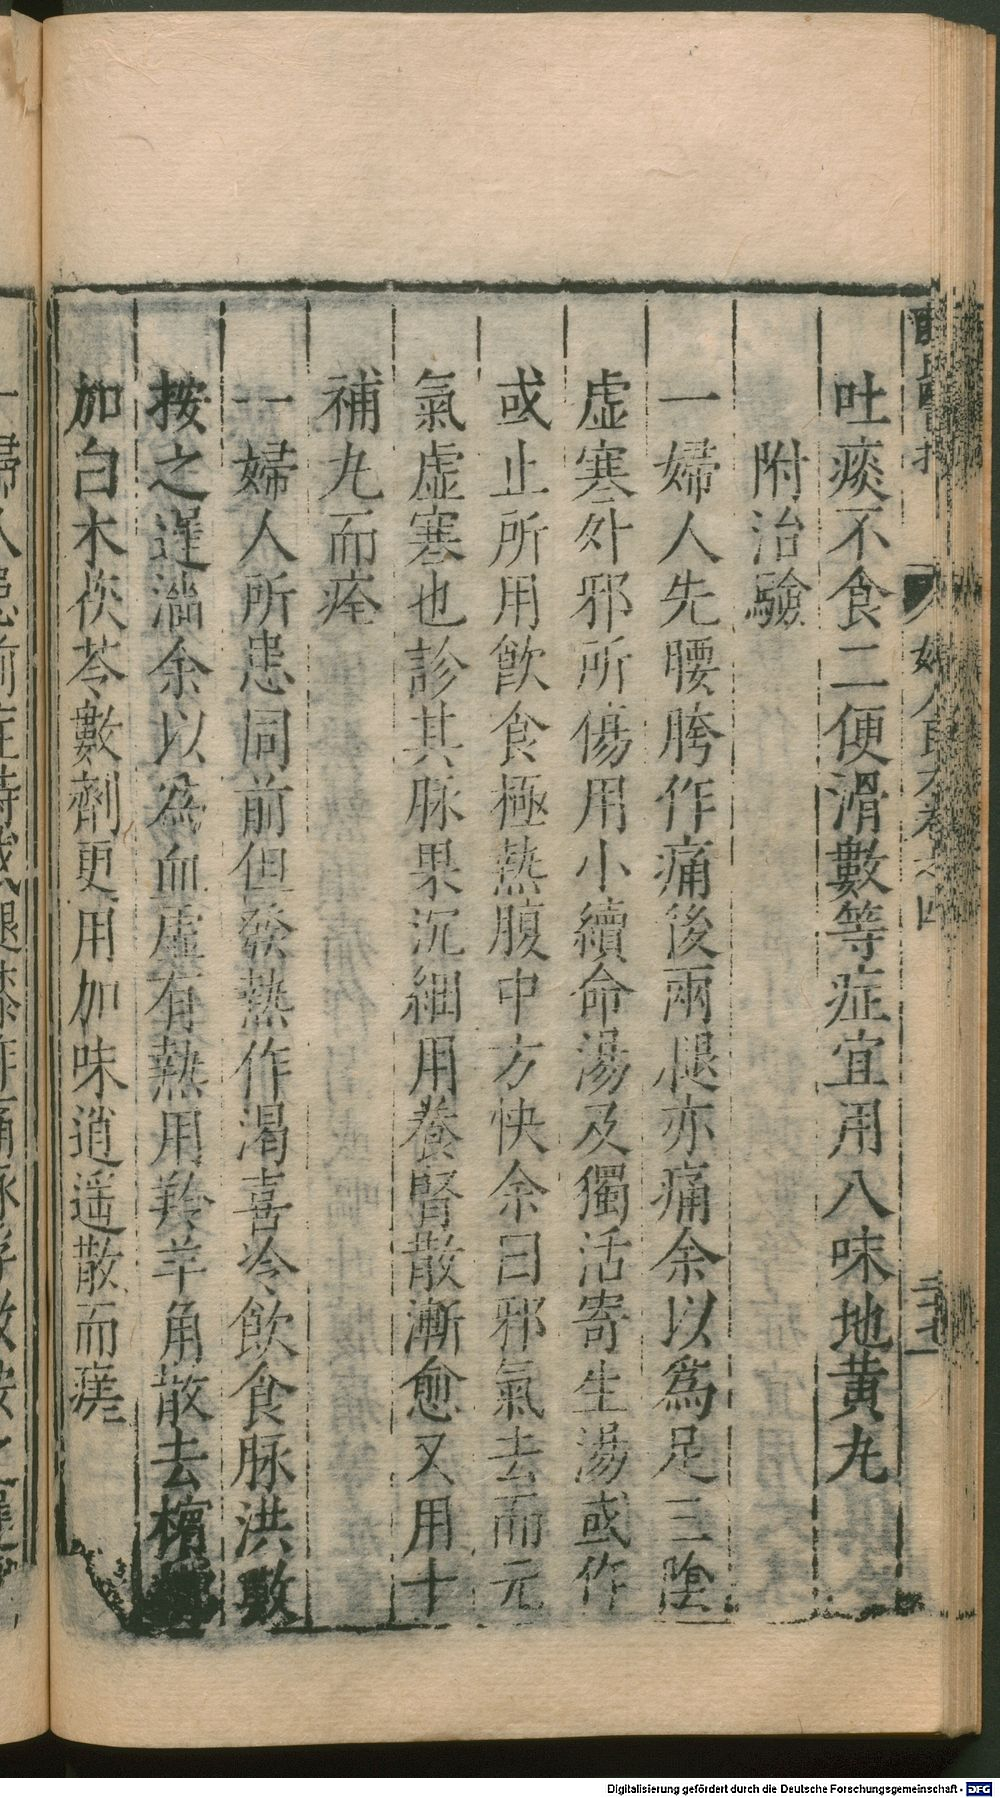 吐痰不食二便滑數等症宜用八味地黄丸
附治驗
一婦人先腰胯作痛後兩腿亦痛余以爲足三陰
虛寒外邪所傷用小續命湯及獨活寄生湯或作
或止所用飲食極熱腹中方快余曰邪氣去而元
氣虛寒也診其脉果沉細用養腎散漸愈又用十
補丸而痊
一婦人所患同前但發熱作渴喜冷飲食脉洪數
按之遲濇余以爲血虛有熱用羚羊角散去檳
加白术茯苓數劑更用加味逍遥散而瘥
婦人良方卷之四
三十一
Digitalisierung gefördert durch die Deutsche Forschungsgemeinschaft - DFG